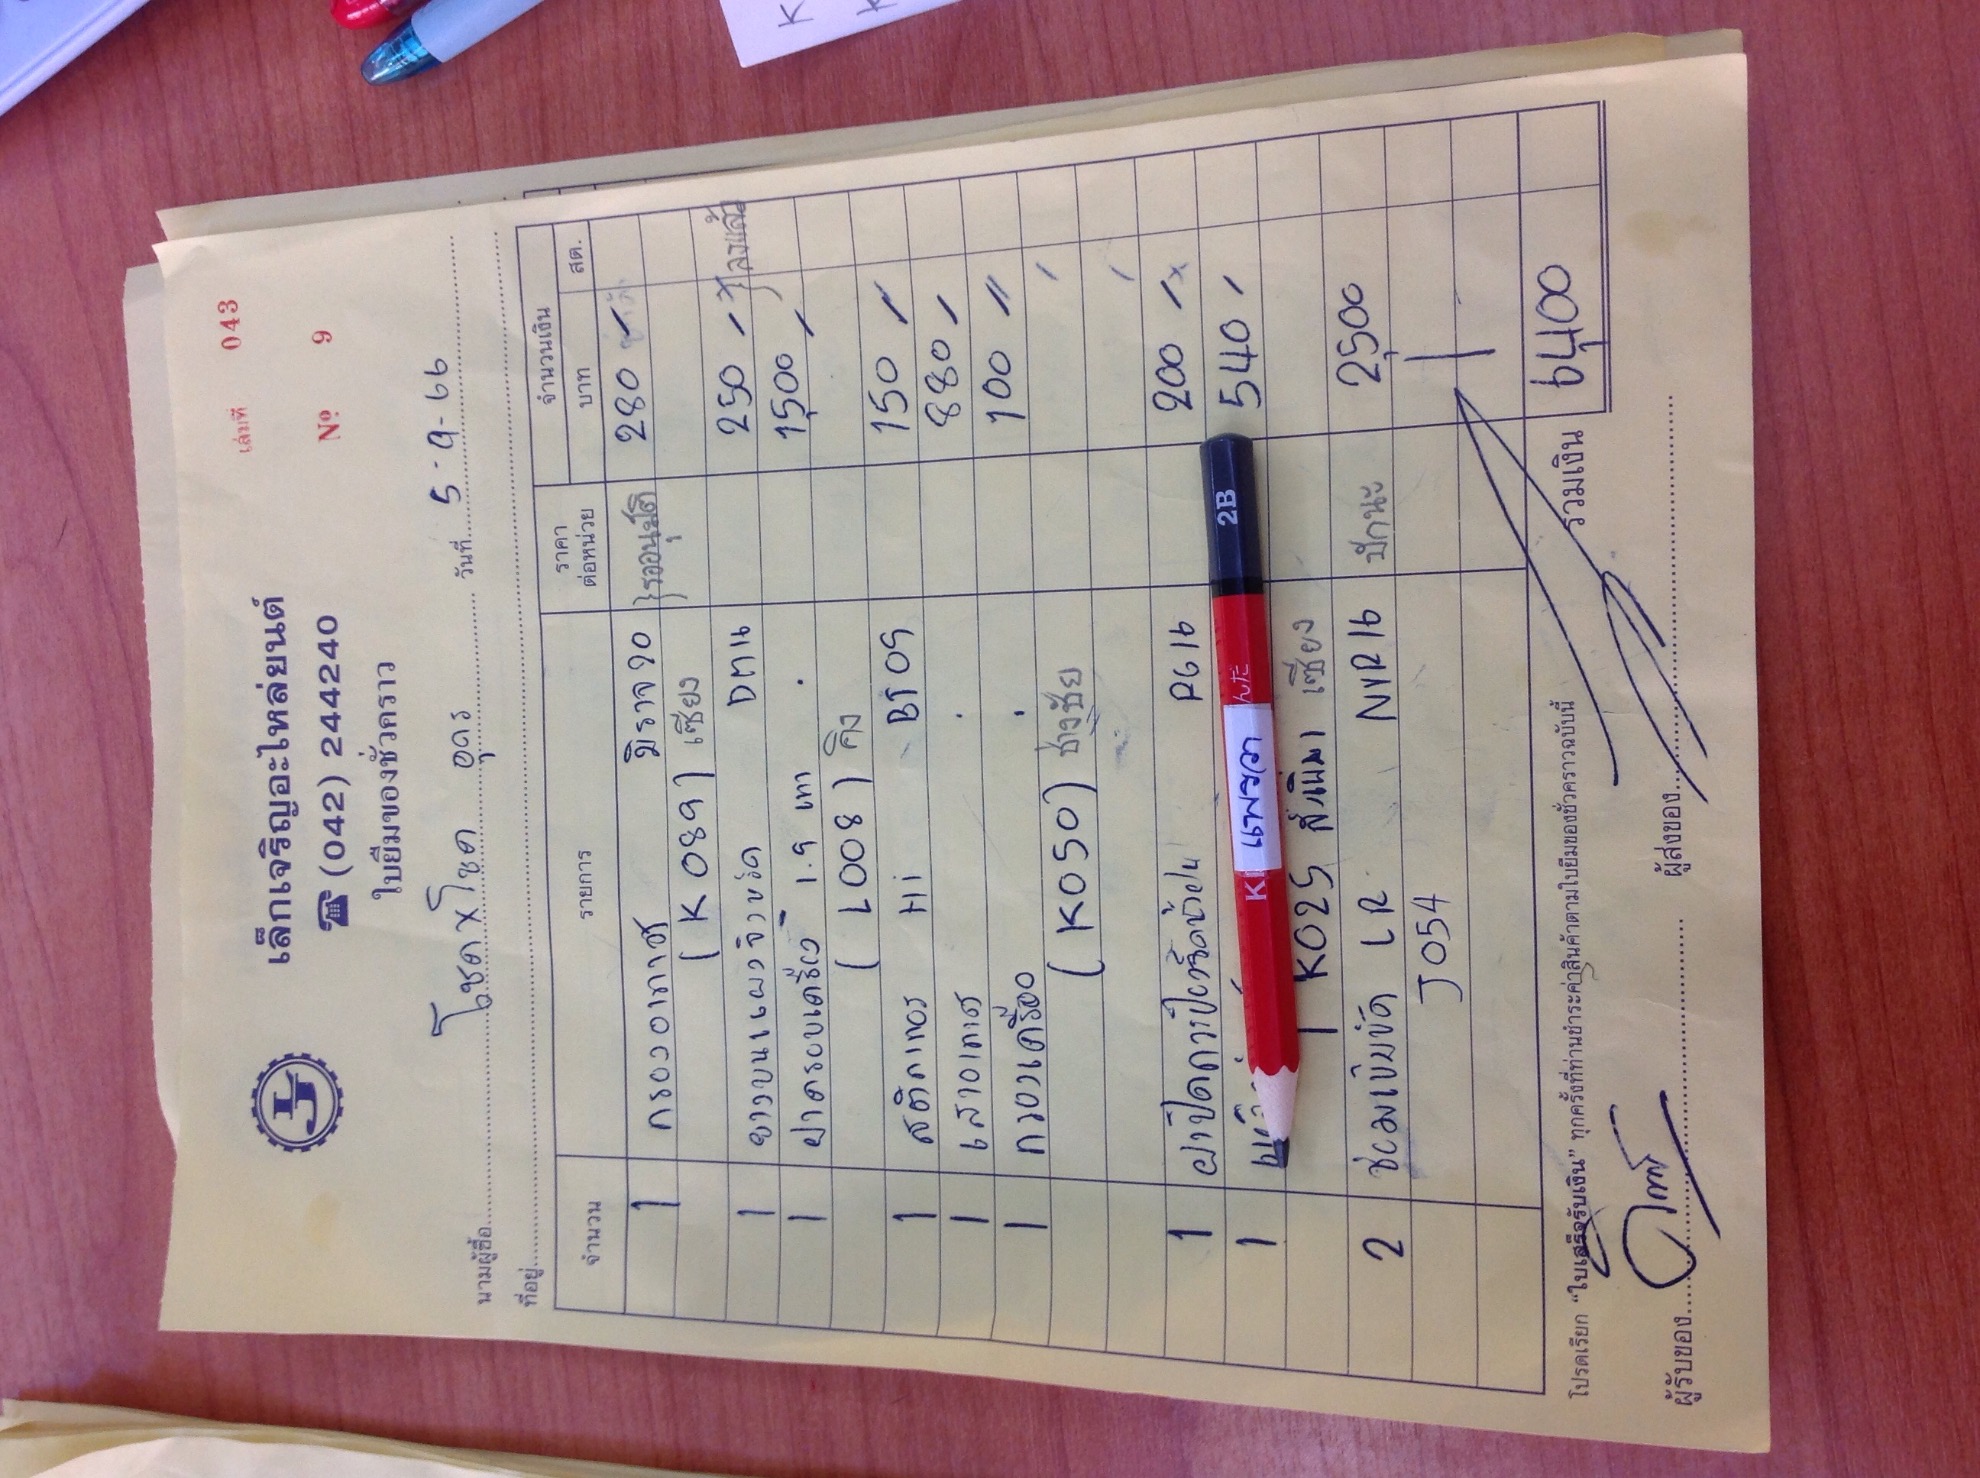 เล่มที่ 043
เล็กเจริญอะไหล่ยนต์
☎ (042) 244240
Nº 9
ใบยืมของชั่วคราว
นามผู้ซื้อ โชคxโชค อุดร วันที่ 5-9-66
ที่อยู่
จำนวน รายการ ราคาต่อหน่วย จำนวนเงิน
บาท สต.
1 กรองอากาศ มิราจ 90 รออนุมัติ 280
(K089) เซียง
1 DM16 250 ลงแล้ว
1 ฝาครอบเตเรียว 1.9 เทา 1,500
(L008) คิง
1 สติกเกอร์ Hi BT09 150
1 สายอากาศ 880
1 กรองเครื่อง 100
(K050) ช่างชัย
1 PG16 200
1 540
K025 เซียง
2 LR NVR16 ปักนะ 2,500
J054
รวมเงิน 6,400
โปรดเรียก "ใบเสร็จรับเงิน" ทุกครั้งที่ท่านชำระค่าสินค้าตามใบยืมของชั่วคราวฉบับนี้
ผู้รับของ ผู้ส่งของ
2B
แพรวา
K